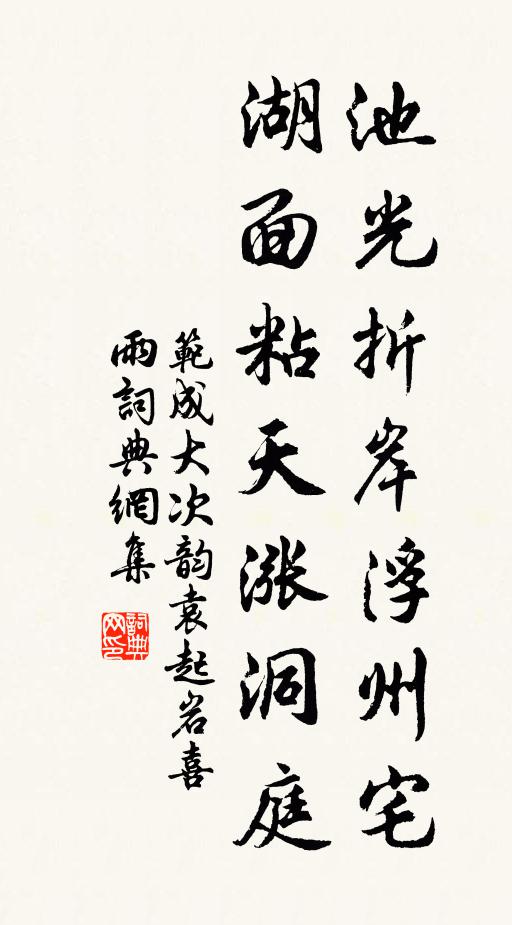 池光折岸浮州宅
湖面粘天漲洞庭
範成大次韵袁起岩喜
雨詞典網集
詞典网印